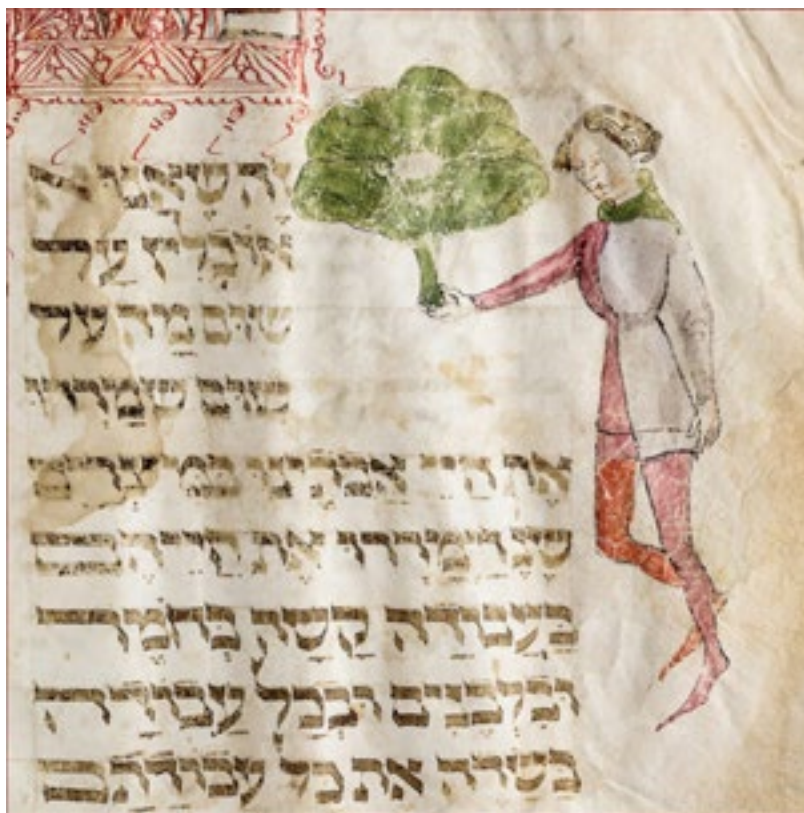 זֶה שֶׁאָנוּ
אוֹכְלִין עַל
שׁוּם מָה עַל
שׁוּם שֶׁמֵּרְרוּ
אֶת חַיֵּי אֲבוֹתֵינוּ בְּמִצְרַיִם
שֶׁנֶּ וַיְמָרְרוּ אֶת חַיֵּיהֶם
בַּעֲבוֹדָה קָשָׁה בְּחֹמֶר
וּבִלְבֵנִים וּבְכָל עֲבוֹדָה
בַּשָּׂדֶה אֶת כָּל עֲבוֹדָתָם